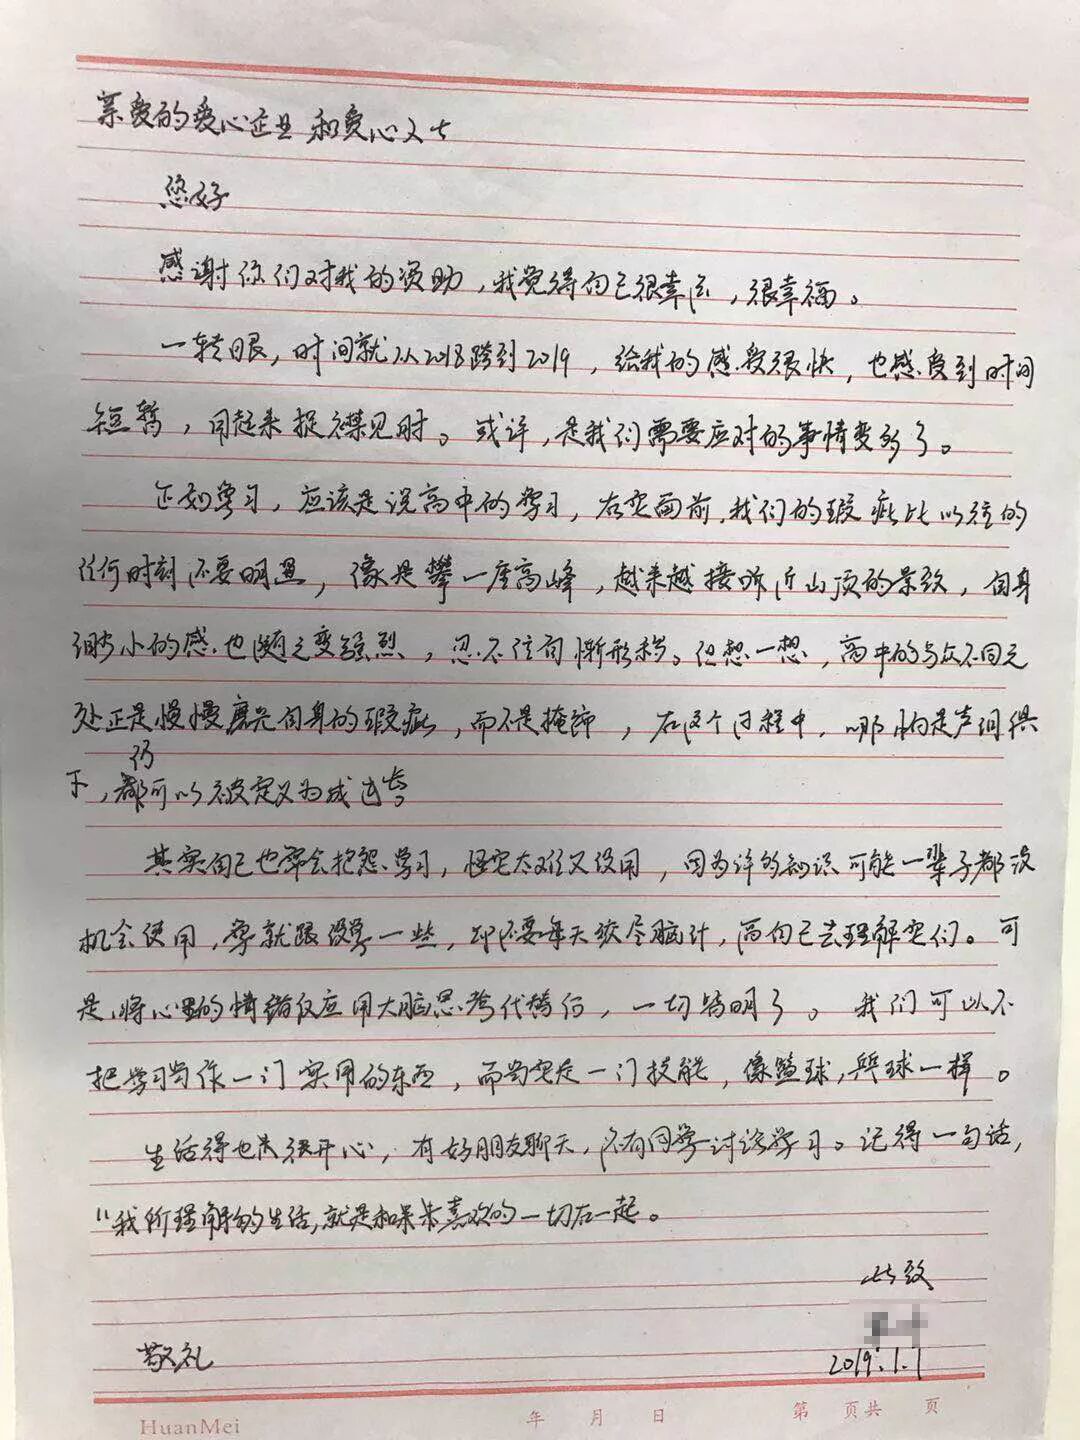 亲爱的爱心企业和爱心人士
您好
感谢你们对我的资助，我觉得自己很幸运，很幸福。
一转眼，时间就从2018跨到2019，给我的感受很快，也感受到时间
短暂，回起来捉襟见肘。或许，是我们需要应对的事情变多了。
正如学习，应该是说高中的学习，在它面前，我们的瑕疵比以往的
任何时刻还要明显，像是攀一座高峰，越来越接听近山顶的景致，自身
渺小的感也随之变强烈，忍不住自惭形秽。但想一想，高中的与众不同之
处正是慢慢磨光自身的瑕疵，而不是掩饰，在这个过程中，哪怕是声泪俱
下，都仍可以被定义为成长。
其实自己也常会抱怨学习，怪它太难又没用，因为许多知识可能一辈子都没
机会使用，学就跟没学一些，却还要每天绞尽脑汁，高自己去理解它们。可
是，将心里的情绪反应用大脑思考代替后，一切皆明了。我们可以不
把学习当作一门实用的东西，而当它是一门技能，像篮球，乒球一样。
生活得也很开心，有好朋友聊天，还有同学讨论学习。记得一句话，
“我所理解的生活，就是和呆未喜欢的一切在一起。
此致
敬礼
2019.1.1
HuanMei 年 月 日 第 页共 页